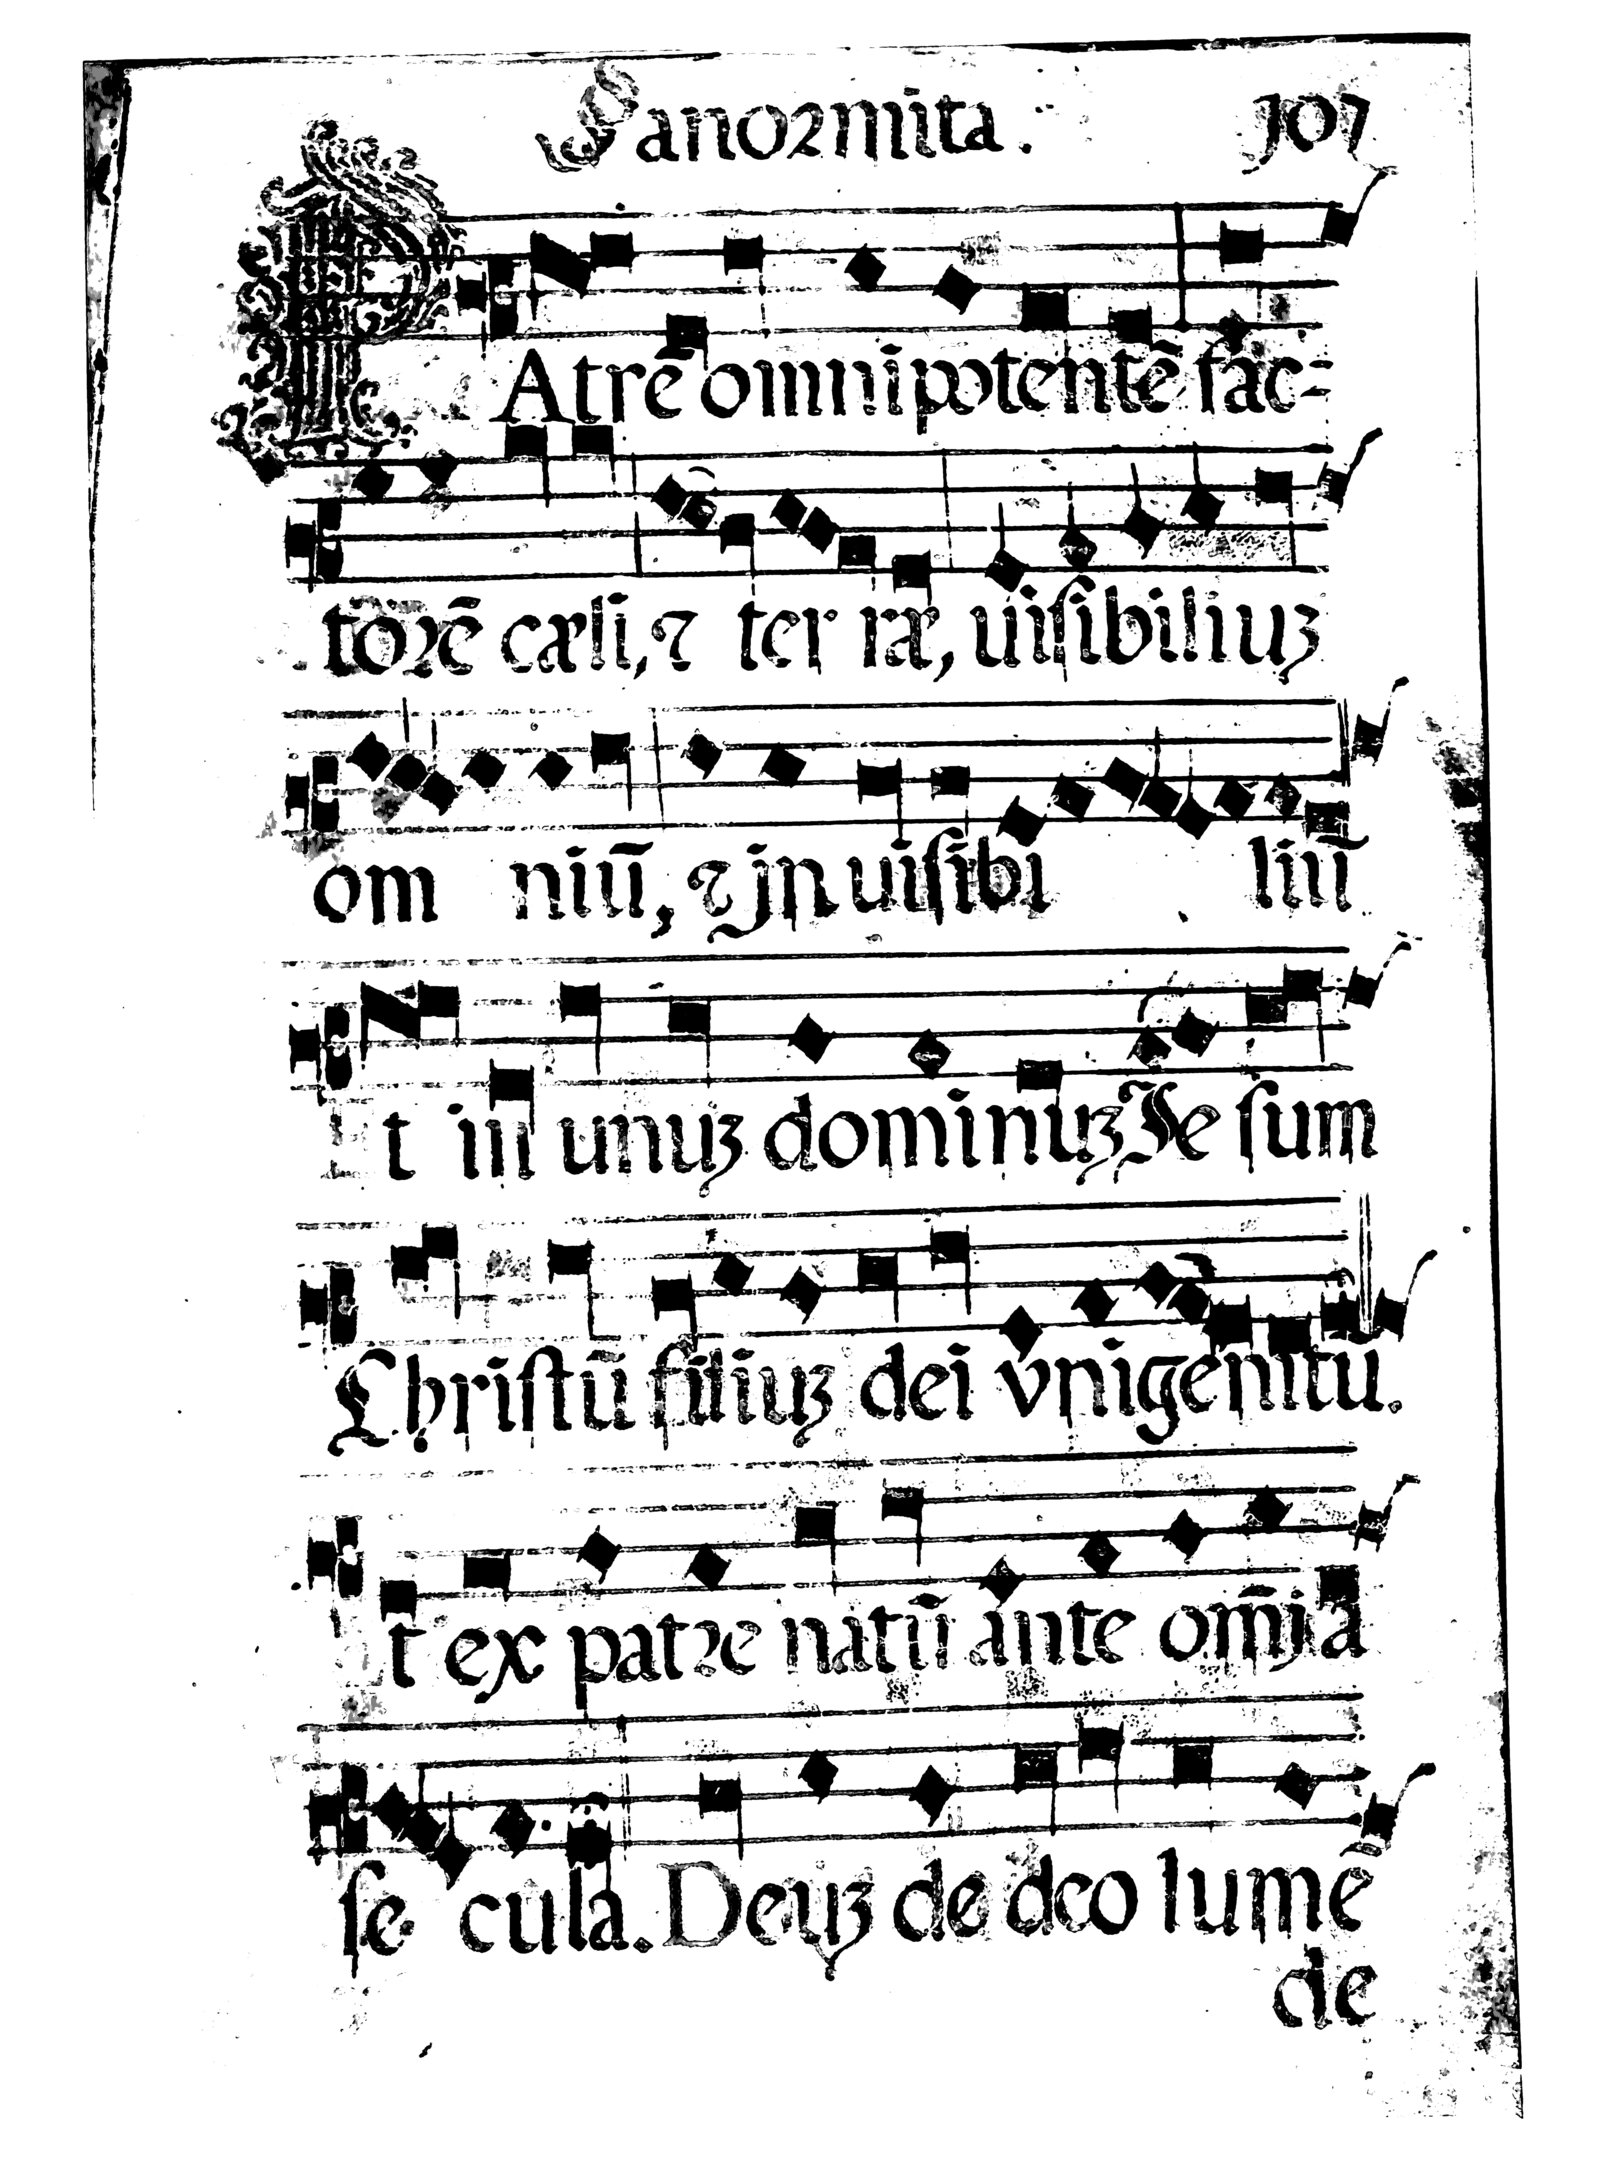 Panormita. 107
PAtrē omnipotentē fac=
torē cæli, ⁊ ter ræ, uisibiliuʒ
om niū, ⁊ jnuisibi liū
Et in unuʒ dominuʒ Je sum
Christū filiuʒ dei vnigenitū.
Et ex patre natū ante om̄ja
se cula. Deuʒ de deo lumē
de